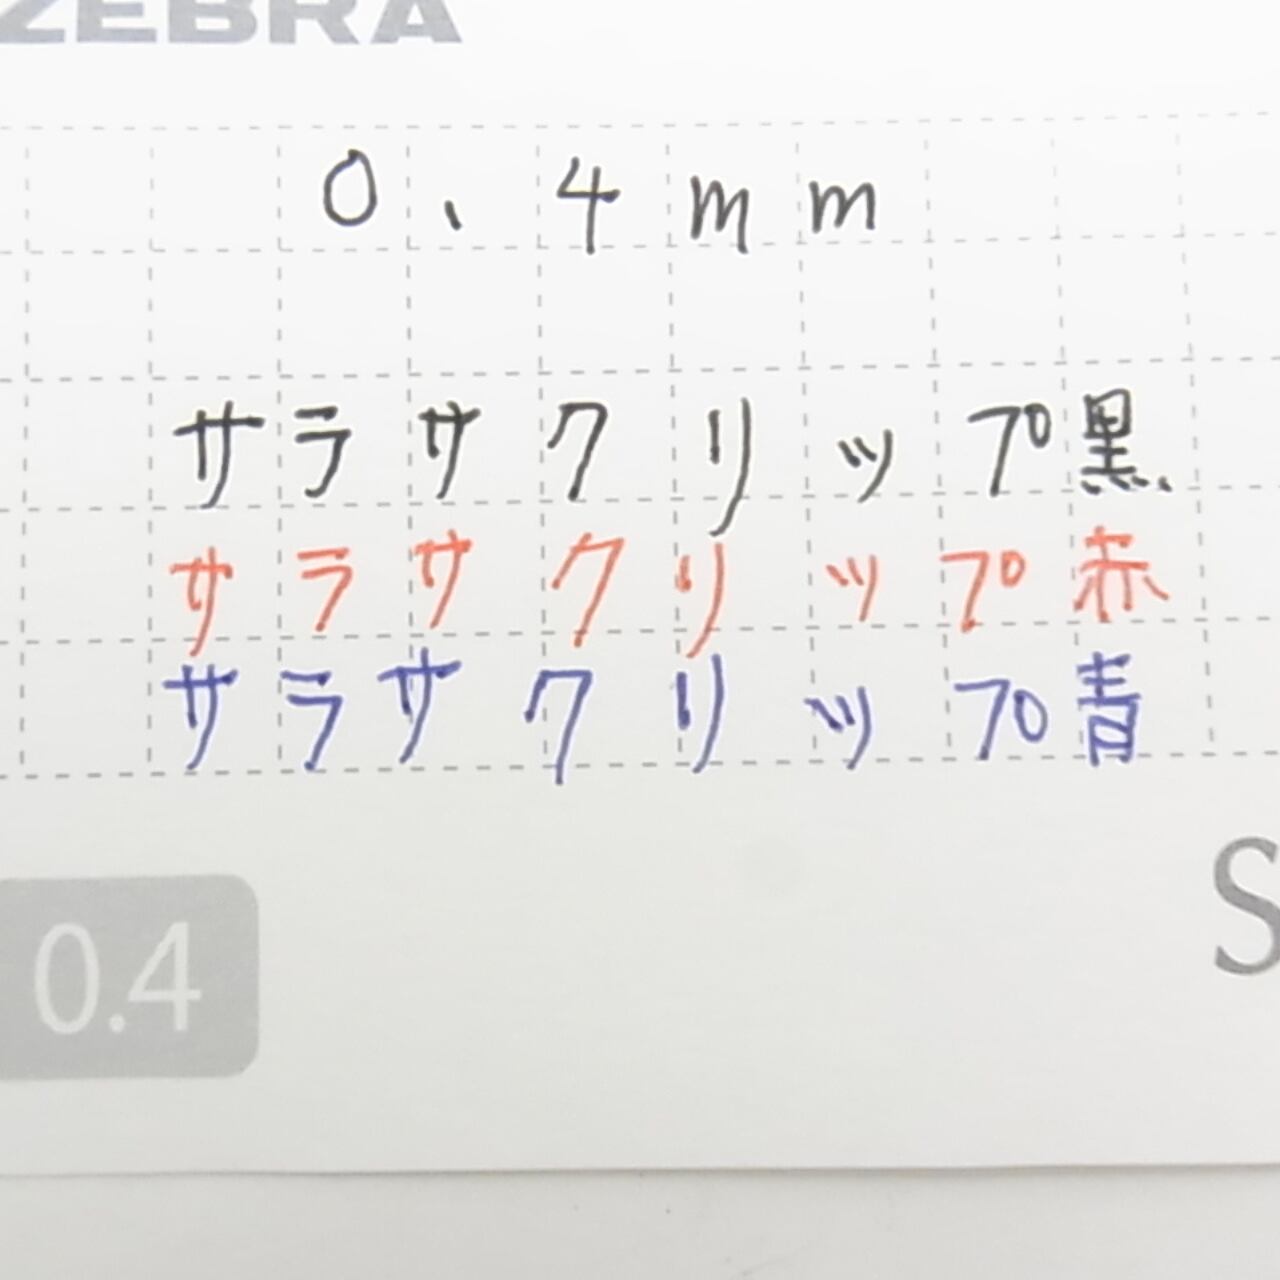 ZEBRA
0.4mm
サラサクリップ黒
サラサクリップ赤
サラサクリップ青
0.4
S